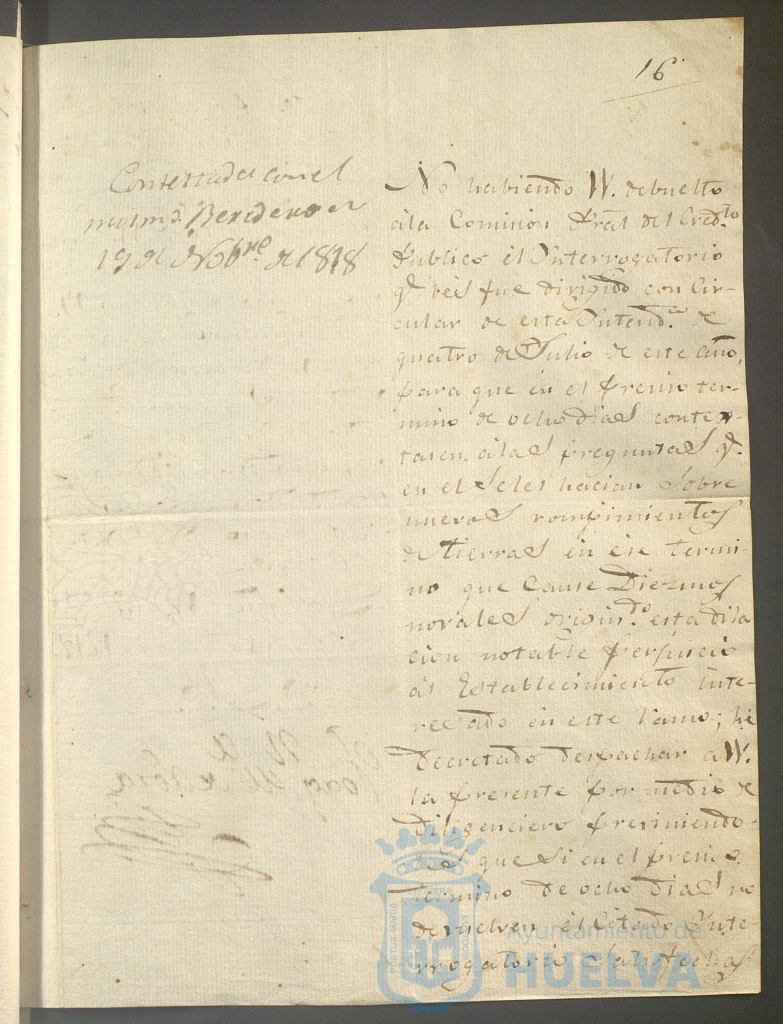 16
Contestada con el
mismo Beredero en
19 de Nobre de 1818
No habiendo W. debuelto
ála Comision Pral del Credto
Publico el Interrogatorio
q. les fue dirigido con Cir-
cular de esta Intenda de
quatro de Julio de este año,
para que en el preciso ter-
mino de ocho dias contes-
tasen álas preguntas q.
en el se les hacian sobre
nuevos rompimientos
de tierras en ese termi-
no que cause Diezmos
novales origindo esta dila
cion notable perjuicio
ál Establecimiento inte-
resado en este ramo; hé
Decretado despachar a W.
la presente por medio de
Diligenciero previniendo-
les que si en el preciso
termino de ocho dias no
devuelven el citado Inte-
rrogatorio satisfechas
PORTUS MARIS
Ayuntamiento de
HUELVA